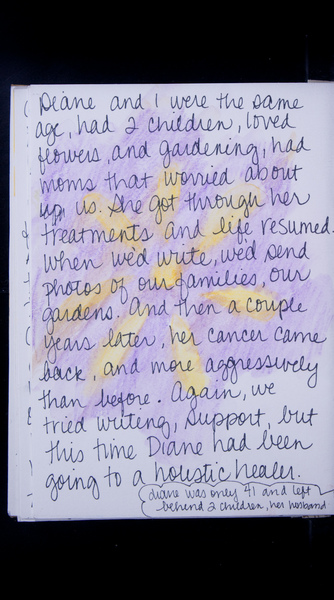 Diane and I were the same
age, had 2 children, loved
flowers, and gardening, had
moms that worried about
us. She got through her
treatments and life resumed.
When we'd write, we'd send
photos of our families, our
gardens. And then a couple
years later, her cancer came
back, and more aggressively
than before. Again, we
tried writing, support, but
this time Diane had been
going to a holistic healer.
Diane was only 41 and left
behind 2 children, her husband